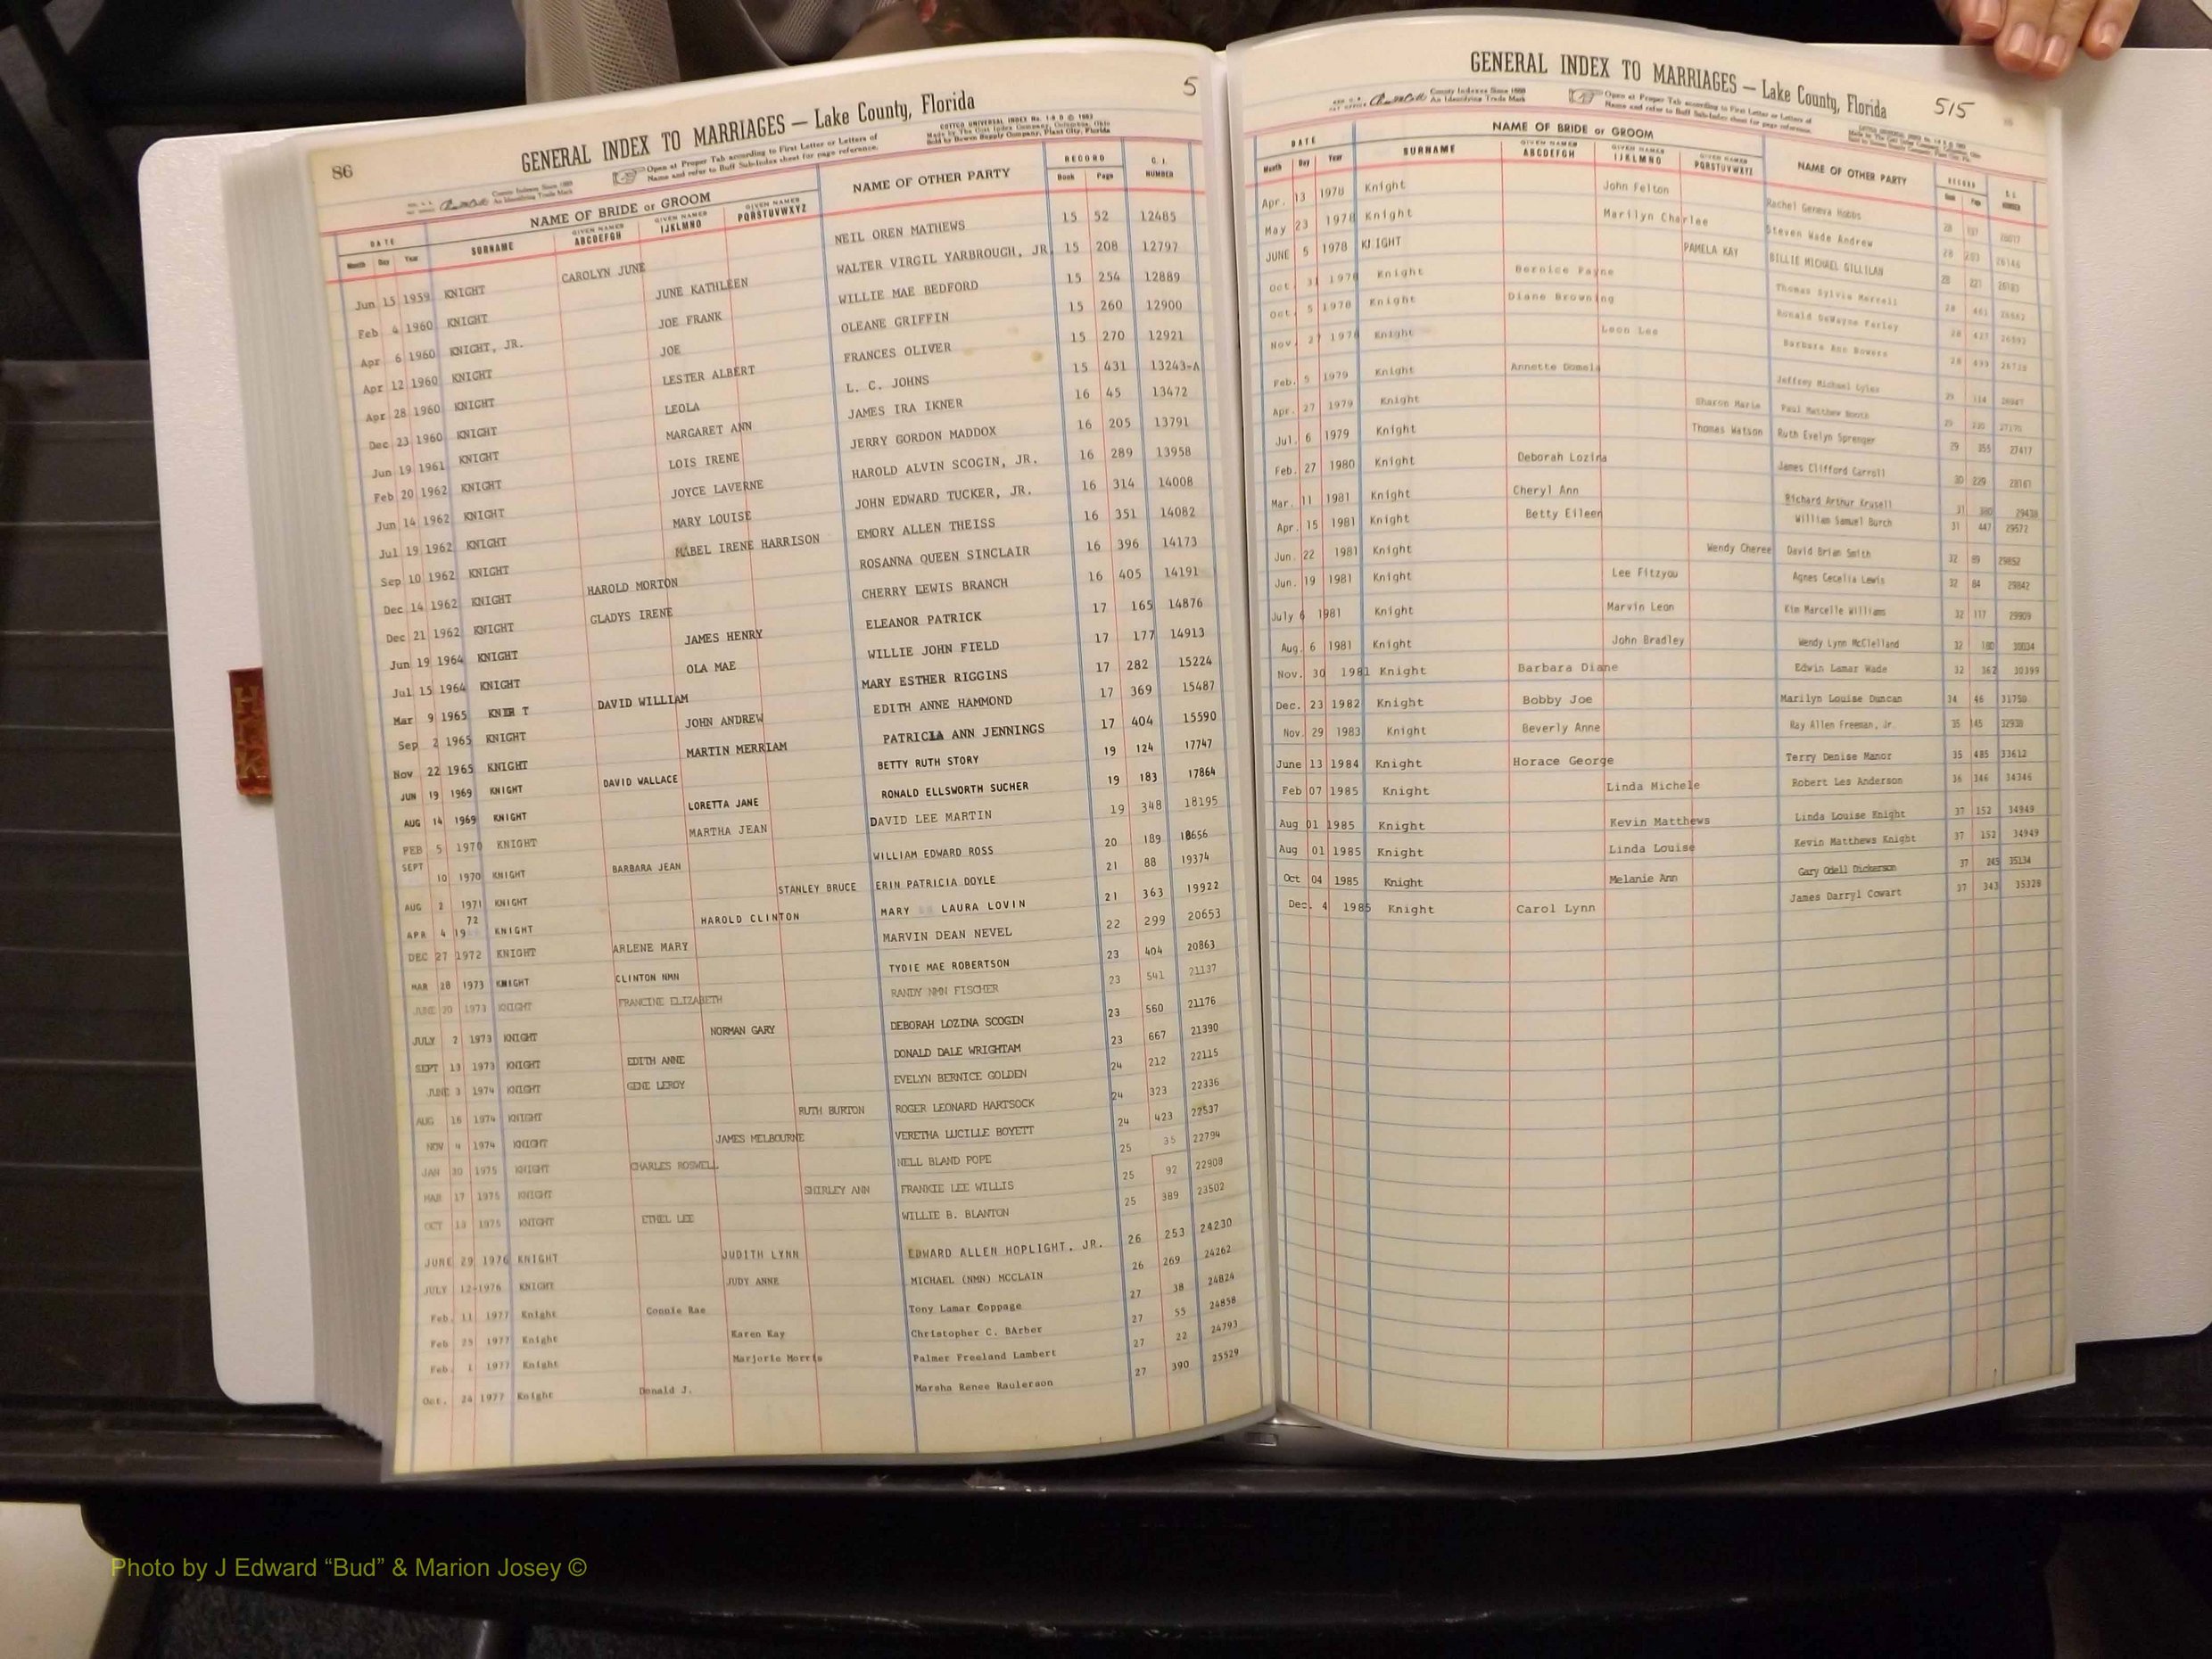 86
5
GENERAL INDEX TO MARRIAGES — Lake County, Florida
County Indexes Since 1888
An Identifying Trade Mark
Open at Proper Tab according to First Letter or Letters of
Name and refer to Buff Sub-Index sheet for page reference.
COTTCO UNIVERSAL INDEX
Made by The Cott Index Company, Columbus, Ohio
Sold by Bowen Supply Company, Plant City, Florida
DATE NAME OF BRIDE or GROOM NAME OF OTHER PARTY RECORD
Month Day Year SURNAME GIVEN NAMES ABCDEFGH GIVEN NAMES IJKLMNO GIVEN NAMES PQRSTUVWXYZ Book Page NUMBER
Jun 15 1959 KNIGHT CAROLYN JUNE NEIL OREN MATHEWS 15 52 12485
Feb 4 1960 KNIGHT JUNE KATHLEEN WALTER VIRGIL YARBROUGH, JR 15 208 12797
Apr 6 1960 KNIGHT, JR. JOE FRANK WILLIE MAE BEDFORD 15 254 12889
Apr 12 1960 KNIGHT JOE OLEANE GRIFFIN 15 260 12900
Apr 28 1960 KNIGHT LESTER ALBERT FRANCES OLIVER 15 270 12921
Dec 23 1960 KNIGHT LEOLA L. C. JOHNS 15 431 13243-A
Jun 19 1961 KNIGHT MARGARET ANN JAMES IRA IKNER 16 45 13472
Feb 20 1962 KNIGHT LOIS IRENE JERRY GORDON MADDOX 16 205 13791
Jun 14 1962 KNIGHT JOYCE LAVERNE HAROLD ALVIN SCOGIN, JR. 16 289 13958
Jul 19 1962 KNIGHT MARY LOUISE JOHN EDWARD TUCKER, JR. 16 314 14008
Sep 10 1962 KNIGHT MABEL IRENE HARRISON EMORY ALLEN THEISS 16 351 14082
Dec 14 1962 KNIGHT HAROLD MORTON ROSANNA QUEEN SINCLAIR 16 396 14173
Dec 21 1962 KNIGHT GLADYS IRENE CHERRY LEWIS BRANCH 16 405 14191
Jun 19 1964 KNIGHT JAMES HENRY ELEANOR PATRICK 17 165 14876
Jul 15 1964 KNIGHT OLA MAE WILLIE JOHN FIELD 17 177 14913
Mar 9 1965 DAVID WILLIAM MARY ESTHER RIGGINS 17 282 15224
Sep 2 1965 KNIGHT JOHN ANDREW EDITH ANNE HAMMOND 17 369 15487
Nov 22 1965 KNIGHT MARTIN MERRIAM PATRICIA ANN JENNINGS 17 404 15590
JUN 19 1969 KNIGHT DAVID WALLACE BETTY RUTH STORY 19 124 17747
AUG 14 1969 KNIGHT LORETTA JANE RONALD ELLSWORTH SUCHER 19 183 17864
FEB 5 1970 KNIGHT MARTHA JEAN DAVID LEE MARTIN 19 348 18195
SEPT 10 1970 KNIGHT BARBARA JEAN WILLIAM EDWARD ROSS 20 189 18656
AUG 2 1971 KNIGHT STANLEY BRUCE ERIN PATRICIA DOYLE 21 88 19374
72
APR 4 19 KNIGHT HAROLD CLINTON MARY LAURA LOVIN 21 363 19922
DEC 27 1972 KNIGHT ARLENE MARY MARVIN DEAN NEVEL 22 299 20653
MAR 28 1973 KNIGHT CLINTON NMN TYDIE MAE ROBERTSON 23 404 20863
JUNE 20 1973 KNIGHT FRANCINE ELIZABETH RANDY NMN FISCHER 23 541 21137
JULY 2 1973 KNIGHT NORMAN GARY DEBORAH LOZINA SCOGIN 23 560 21176
SEPT 13 1973 KNIGHT EDITH ANNE DONALD DALE WRIGHTAM 23 667 21390
JUNE 3 1974 KNIGHT GENE LEROY EVELYN BERNICE GOLDEN 24 212 22115
AUG 16 1974 KNIGHT RUTH BURTON ROGER LEONARD HARTSOCK 24 323 22336
NOV 4 1974 KNIGHT JAMES MELBOURNE VERETHA LUCILLE BOYETT 24 423 22537
JAN 30 1975 KNIGHT CHARLES ROSWELL NELL BLAND POPE 25 35 22794
MAR 17 1975 KNIGHT SHIRLEY ANN FRANKIE LEE WILLIS 25 92 22908
OCT 13 1975 KNIGHT ETHEL LEE WILLIE B. BLANTON 25 389 23502
JUNE 29 1976 KNIGHT JUDITH LYNN EDWARD ALLEN HOPLIGHT, JR. 26 253 24230
JULY 12-1976 KNIGHT JUDY ANNE MICHAEL (NMN) MCCLAIN 26 269 24262
Feb. 11 1977 Knight Connie Rae Tony Lamar Coppage 27 38 24824
Feb 25 1977 Knight Karen Kay Christopher C. BArber 27 55 24858
Feb. 1 1977 Knight Marjorie Morris Palmer Freeland Lambert 27 22 24793
Oct. 24 1977 Knight Donald J. Marsha Renee Raulerson 27 390 25529
GENERAL INDEX TO MARRIAGES — Lake County, Florida
515
County Indexes Since 1888
An Identifying Trade Mark
Open at Proper Tab according to First Letter or Letters of
Name and refer to Buff Sub-Index sheet for page reference.
DATE NAME OF BRIDE or GROOM NAME OF OTHER PARTY RECORD
Month Day Year SURNAME GIVEN NAMES ABCDEFGH GIVEN NAMES IJKLMNO GIVEN NAMES PQRSTUVWXYZ Book Page NUMBER
Apr. 13 1978 Knight John Felton Rachel Geneva Hobbs 28
May 23 1978 Knight Marilyn Charlee Steven Wade Andrew 28 203
JUNE 5 1978 PAMELA KAY BILLIE MICHAEL GILLILAN 28 221
Oct 31 1978 Knight Bernice Payne Thomas Sylvia Merrell 28
Oct 5 1978 Knight Diane Browning Ronald DeWayne Farley 28 427
Nov. 27 1978 Knight Leon Lee Barbara Ann Bowers 28 499 26728
Feb. 5 1979 Knight Annette Domela Jeffrey Michael Lyles 29 114
Apr. 27 1979 Knight Sharon Marie Paul Matthew Booth 29 27170
Jul. 6 1979 Knight Thomas Watson Ruth Evelyn Sprenger 29 355 27417
Feb. 27 1980 Knight Deborah Lozina James Clifford Carroll 30 229 28167
Mar. 11 1981 Knight Cheryl Ann Richard Arthur Krusell 31 380 29438
Apr. 15 1981 Knight Betty Eileen William Samuel Burch 31 447 29572
Jun. 22 1981 Knight Wendy Cheree David Brian Smith 32 89 29852
Jun. 19 1981 Knight Lee Fitzyou Agnes Cecelia Lewis 32 84 29842
July 6 1981 Knight Marvin Leon Kim Marcelle Williams 32 117 29909
Aug. 6 1981 Knight John Bradley Wendy Lynn McClelland 32 180 30034
Nov. 30 1981 Knight Barbara Diane Edwin Lamar Wade 32 362 30399
Dec. 23 1982 Knight Bobby Joe Marilyn Louise Duncan 34 46 31750
Nov. 29 1983 Knight Beverly Anne Ray Allen Freeman, Jr. 35 145 32938
June 13 1984 Knight Horace George Terry Denise Manor 35 485 33612
Feb 07 1985 Knight Linda Michele Robert Les Anderson 36 346 34346
Aug 01 1985 Knight Kevin Matthews Linda Louise Knight 37 152 34949
Aug 01 1985 Knight Linda Louise Kevin Matthews Knight 37 152 34949
Oct 04 1985 Knight Melanie Ann Gary Odell Dickerson 37 245 35134
Dec. 4 1985 Knight Carol Lynn James Darryl Cowart 37 343 35328
H
K
Photo by J Edward “Bud” & Marion Josey ©